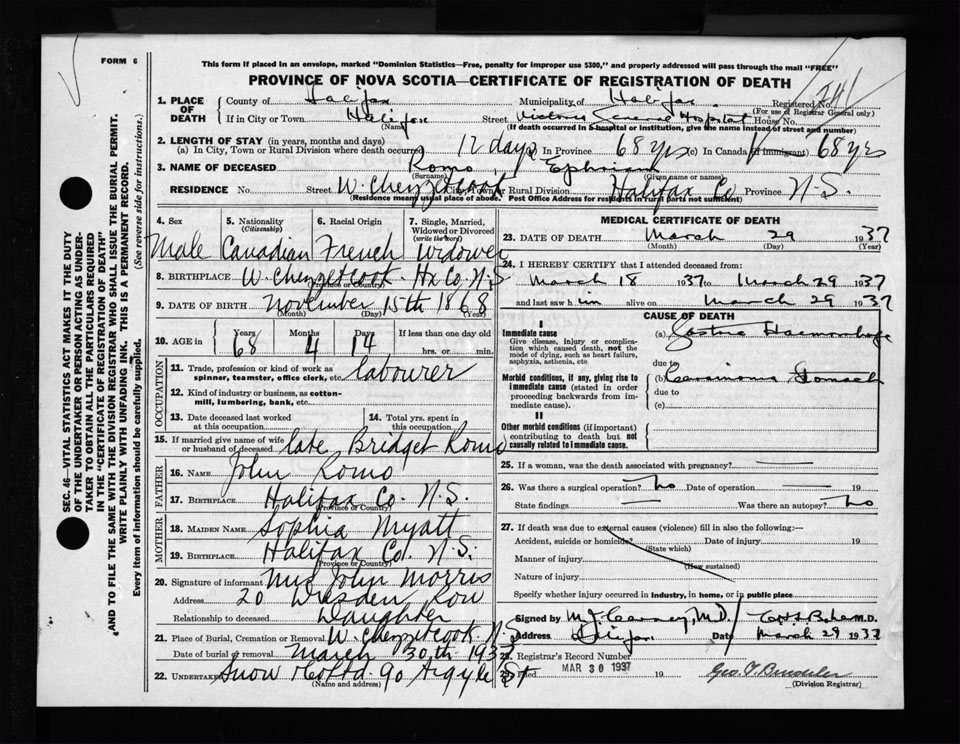 FORM 6
This form if placed in an envelope, marked "Dominion Statistics—Free, penalty for improper use $300," and properly addressed will pass through the mail "FREE"
PROVINCE OF NOVA SCOTIA—CERTIFICATE OF REGISTRATION OF DEATH
1. PLACE OF DEATH County of Halifax Municipality of Halifax Registered No. 241
(For use of Registrar General only)
If in City or Town Halifax Street Victoria General Hospital House No.
(Name) (If death occurred in a hospital or institution, give the name instead of street and number)
2. LENGTH OF STAY (in years, months and days)
(a) In City, Town or Rural Division where death occurred 12 days In Province 68 yrs (c) In Canada (if immigrant) 68 yrs
3. NAME OF DECEASED Romo Ephriam
(Surname) (Given name or names)
RESIDENCE No. Street W. Chezzetcook City, Town or Rural Division Halifax Co Province N.S.
(Residence means usual place of abode. Post Office Address for residents in rural parts not sufficient)
4. Sex 5. Nationality 6. Racial Origin 7. Single, Married, Widowed or Divorced
(Citizenship) (write the word)
Male Canadian French Widower
8. BIRTHPLACE W. Chezzetcook Hx Co. N.S.
(Province or Country)
9. DATE OF BIRTH November 15th 1868
(Month) (Day) (Year)
10. AGE in Years Months Days If less than one day old
68 4 14 hrs. or min.
OCCUPATION
11. Trade, profession or kind of work as spinner, teamster, office clerk, etc. labourer
12. Kind of industry or business, as cotton-mill, lumbering, bank, etc.
13. Date deceased last worked at this occupation 14. Total yrs. spent in this occupation
15. If married give name of wife or husband of deceased late Bridget Romo
FATHER
16. NAME John Romo
17. BIRTHPLACE Halifax Co. N.S.
(Province or Country)
MOTHER
18. MAIDEN NAME Sophia Myatt
19. BIRTHPLACE Halifax Co. N.S.
(Province or Country)
20. Signature of informant Mrs John Morris
Address 20 Row
Relationship to deceased Daughter
21. Place of Burial, Cremation or Removal W. Chezzetcook N.S.
Date of burial or removal March 30th 1937
22. UNDERTAKER Snow & Co Ltd. 90 Argyle St
(Name and address)
MEDICAL CERTIFICATE OF DEATH
23. DATE OF DEATH March 29 1937
(Month) (Day) (Year)
24. I HEREBY CERTIFY that I attended deceased from:
March 18 1937 to March 29 1937
and last saw him alive on March 29 1937
CAUSE OF DEATH
I
Immediate cause (a) Gastric Haemorrhage
Give disease, injury or complication which caused death, not the mode of dying, such as heart failure, asphyxia, asthenia, etc
due to
Morbid conditions, if any, giving rise to immediate cause (stated in order proceeding backwards from immediate cause).
(b) Carcinoma Stomach
due to
(c)
II
Other morbid conditions (if important) contributing to death but not causally related to immediate cause.
25. If a woman, was the death associated with pregnancy? —
26. Was there a surgical operation? No Date of operation — 19
State findings — Was there an autopsy? No
27. If death was due to external causes (violence) fill in also the following:—
Accident, suicide or homicide? Date of injury 19
(State which)
Manner of injury
(How sustained)
Nature of injury
Specify whether injury occurred in industry, in home, or in public place
Signed by M.D. M.D.
Address Halifax Date March 29 1937
28. Registrar's Record Number
29. Filed MAR 30 1937 19
(Division Registrar)
SEC. 46—VITAL STATISTICS ACT MAKES IT THE DUTY OF THE UNDERTAKER OR PERSON ACTING AS UNDERTAKER TO OBTAIN ALL THE PARTICULARS REQUIRED IN THE "CERTIFICATE OF REGISTRATION OF DEATH" AND TO FILE THE SAME WITH THE DIVISION REGISTRAR WHO SHALL ISSUE THE BURIAL PERMIT.
WRITE PLAINLY WITH UNFADING INK. THIS IS A PERMANENT RECORD.
Every item of information should be carefully supplied. (See reverse side for instructions.)